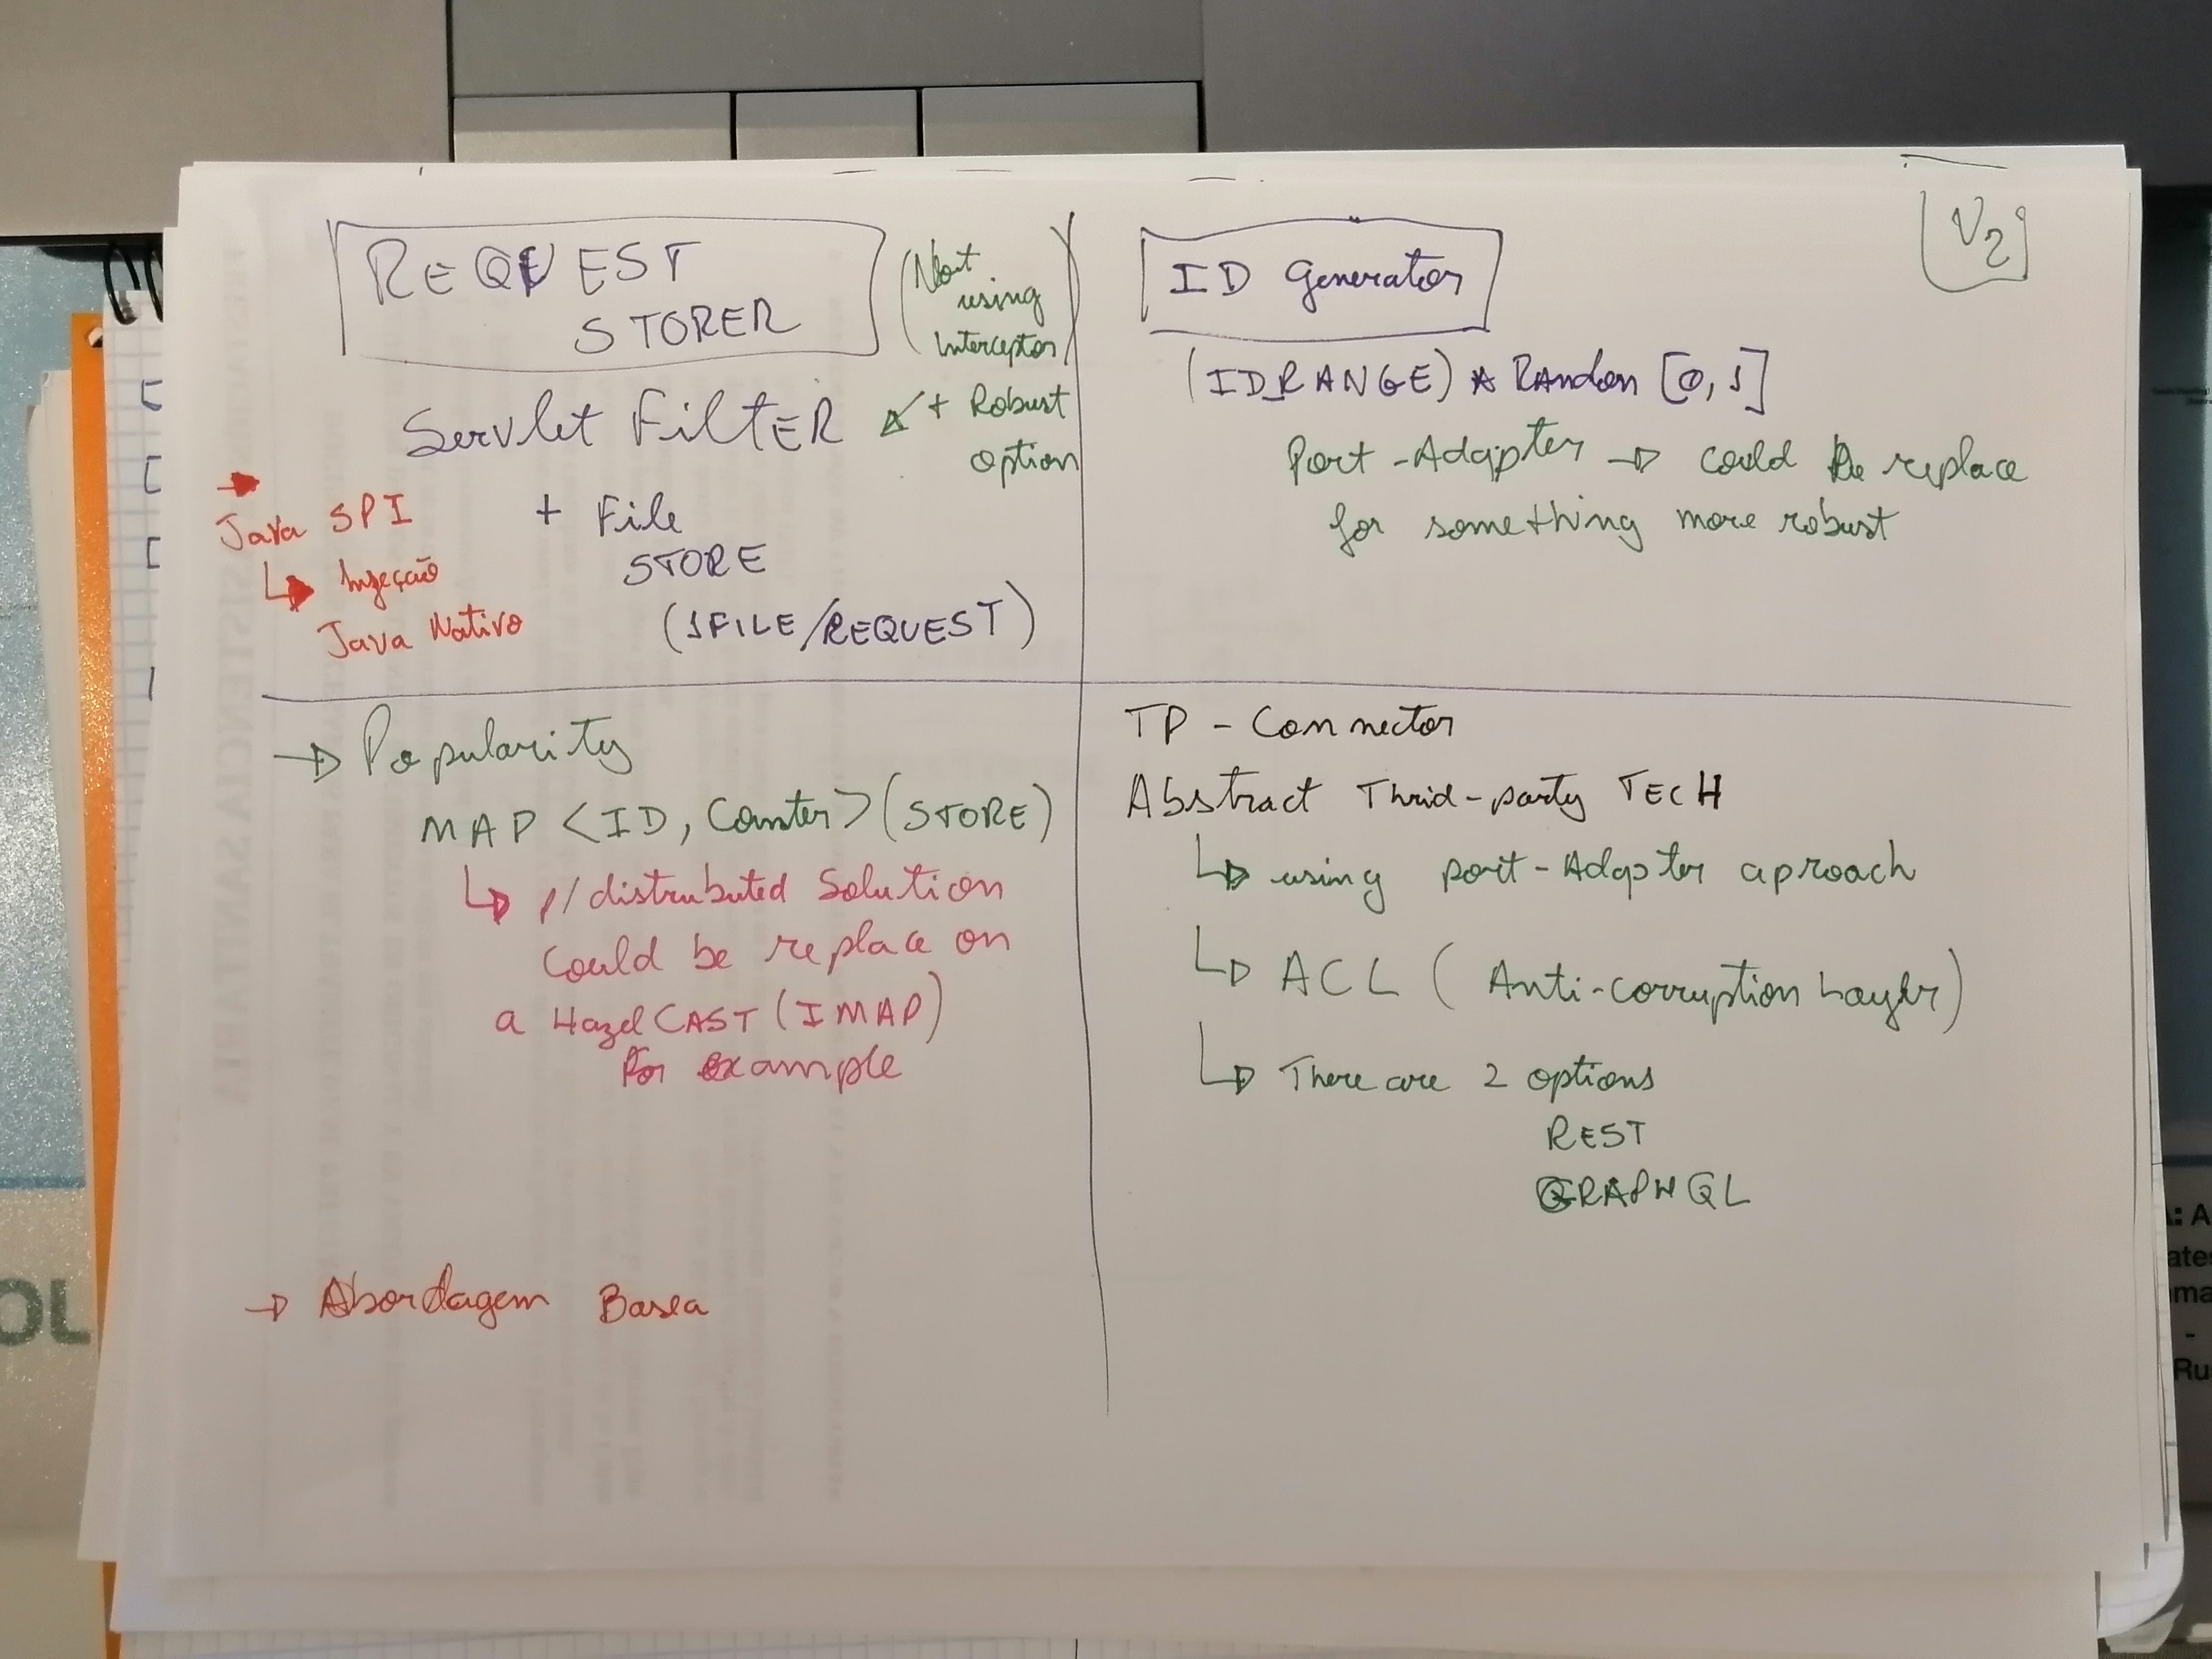 V2
REQUEST
STORER
(Not
using
Interceptor)
Servlet FilTER
+ Robust
option
Java SPI
Injeção
Java Nativo
+ File
STORE
(1FILE/REQUEST)
ID Generator
(ID_RANGE) * RAndon [0,1]
Port-Adapter → could be replace
for something more robust
→ Popularity
MAP <ID, Counter> (STORE)
↳ p/ distributed Solution
Could be replace on
a HazelCAST (IMAP)
For example
→ Abordagem
TP - Connector
Abstract Thrid-party TECH
↳ using port-Adapter aproach
↳ ACL (Anti-corruption Layer)
↳ There are 2 options
REST
GRAPHQL
OL